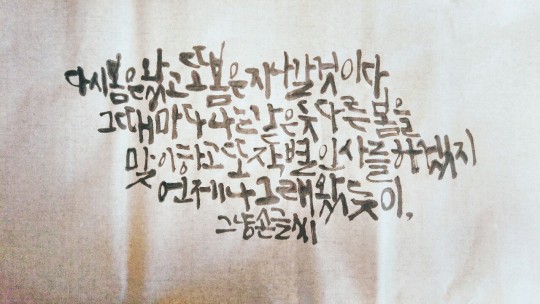 다시 봄은 왔고 또 봄은 지나갈 것이다
그때마다 나는 같은 듯 다른 봄을
맞이하고 또 작별인사를 하겠지
언제나 그래왔듯이,
그냥손글씨